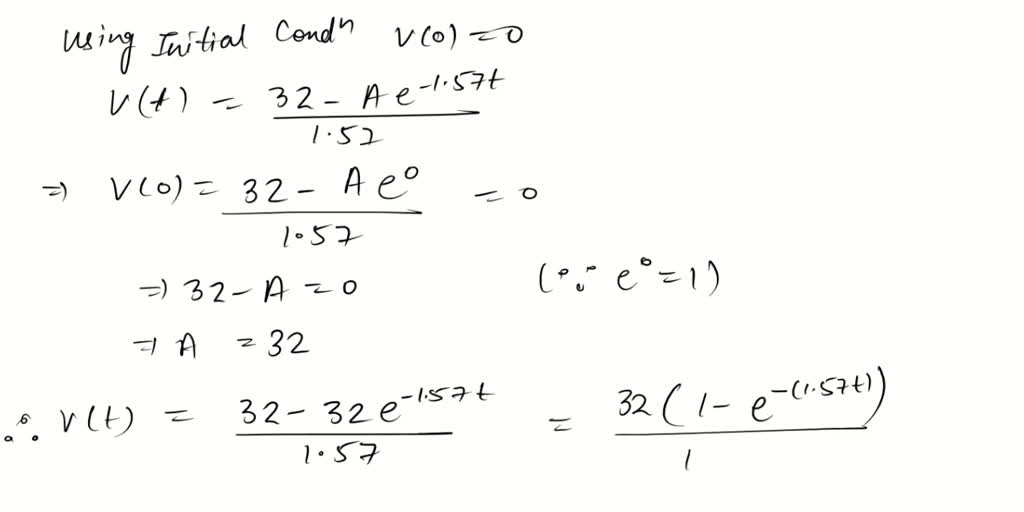 Using Initial Condⁿ V(0) = 0
V(t) = (32 - A e^(-1.57t)) / 1.57
=) V(0) = (32 - A e^0) / 1.57 = 0
=) 32 - A = 0 (∵ e^0 = 1)
=) A = 32
∴ V(t) = (32 - 32 e^(-1.57t)) / 1.57 = 32(1 - e^(-(1.57t))) / 1